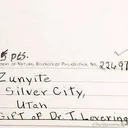 5 pcs.
OF NATURAL SCIENCES OF PHILADELPHIA, No. 22497
Zunyite
Silver City,
Utah
GIFT OF Dr. T. Lovering